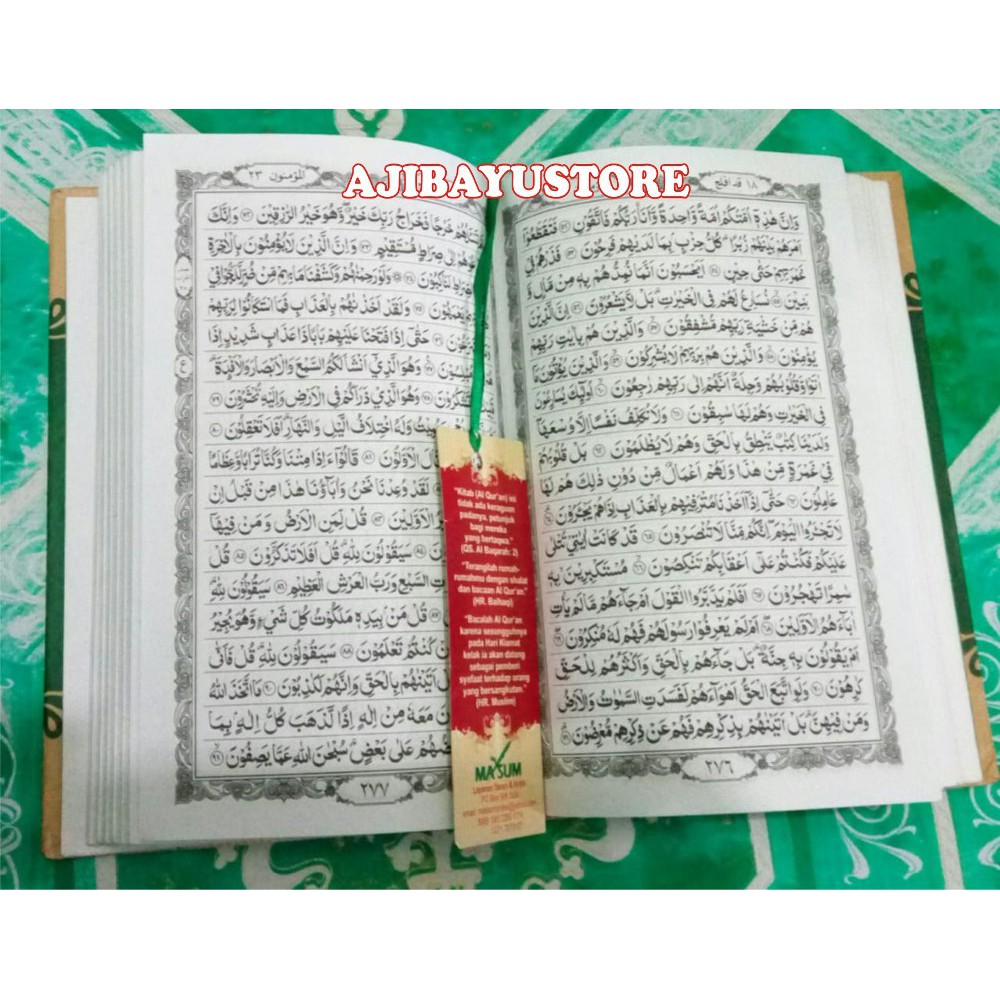 AJIBAYUSTORE
١٨ قد افلح
وَاِنَّ هٰذِهٖٓ اُمَّتُكُمْ اُمَّةً وَّاحِدَةً وَّاَنَا۠ رَبُّكُمْ فَاتَّقُوْنِ ﴿٥٢﴾ فَتَقَطَّعُوْٓا
اَمْرَهُمْ بَيْنَهُمْ زُبُرًاۗ كُلُّ حِزْبٍۢ بِمَا لَدَيْهِمْ فَرِحُوْنَ ﴿٥٣﴾ فَذَرْهُمْ فِيْ
غَمْرَتِهِمْ حَتّٰى حِيْنٍ ﴿٥٤﴾ اَيَحْسَبُوْنَ اَنَّمَا نُمِدُّهُمْ بِهٖ مِنْ مَّالٍ وَّ
بَنِيْنَ ﴿٥٥﴾ نُسَارِعُ لَهُمْ فِى الْخَيْرٰتِۗ بَلْ لَّا يَشْعُرُوْنَ ﴿٥٦﴾ اِنَّ الَّذِيْنَ
هُمْ مِّنْ خَشْيَةِ رَبِّهِمْ مُّشْفِقُوْنَ ﴿٥٧﴾ وَالَّذِيْنَ هُمْ بِاٰيٰتِ رَبِّهِمْ
يُؤْمِنُوْنَ ﴿٥٨﴾ وَالَّذِيْنَ هُمْ بِرَبِّهِمْ لَا يُشْرِكُوْنَ ﴿٥٩﴾ وَالَّذِيْنَ يُؤْتُوْنَ مَآ
اٰتَوْا وَّقُلُوْبُهُمْ وَجِلَةٌ اَنَّهُمْ اِلٰى رَبِّهِمْ رٰجِعُوْنَ ﴿٦٠﴾ اُولٰۤىِٕكَ يُسَارِعُوْنَ
فِى الْخَيْرٰتِ وَهُمْ لَهَا سٰبِقُوْنَ ﴿٦١﴾ وَلَا نُكَلِّفُ نَفْسًا اِلَّا وُسْعَهَا
وَلَدَيْنَا كِتٰبٌ يَّنْطِقُ بِالْحَقِّ وَهُمْ لَا يُظْلَمُوْنَ ﴿٦٢﴾ بَلْ قُلُوْبُهُمْ
فِيْ غَمْرَةٍ مِّنْ هٰذَا وَلَهُمْ اَعْمَالٌ مِّنْ دُوْنِ ذٰلِكَ هُمْ لَهَا
عَامِلُوْنَ ﴿٦٣﴾ حَتّٰىٓ اِذَآ اَخَذْنَا مُتْرَفِيْهِمْ بِالْعَذَابِ اِذَا هُمْ يَجْـَٔرُوْنَ ﴿٦٤﴾
لَا تَجْـَٔرُوا الْيَوْمَۖ اِنَّكُمْ مِّنَّا لَا تُنْصَرُوْنَ ﴿٦٥﴾ قَدْ كَانَتْ اٰيٰتِيْ تُتْلٰى
عَلَيْكُمْ فَكُنْتُمْ عَلٰٓى اَعْقَابِكُمْ تَنْكِصُوْنَ ﴿٦٦﴾ مُسْتَكْبِرِيْنَۖ بِهٖ
سٰمِرًا تَهْجُرُوْنَ ﴿٦٧﴾ اَفَلَمْ يَدَّبَّرُوا الْقَوْلَ اَمْ جَاۤءَهُمْ مَّا لَمْ يَأْتِ
اٰبَاۤءَهُمُ الْاَوَّلِيْنَ ﴿٦٨﴾ اَمْ لَمْ يَعْرِفُوْا رَسُوْلَهُمْ فَهُمْ لَهٗ مُنْكِرُوْنَ ﴿٦٩﴾
اَمْ يَقُوْلُوْنَ بِهٖ جِنَّةٌۗ بَلْ جَاۤءَهُمْ بِالْحَقِّ وَاَكْثَرُهُمْ لِلْحَقِّ
كٰرِهُوْنَ ﴿٧٠﴾ وَلَوِ اتَّبَعَ الْحَقُّ اَهْوَاۤءَهُمْ لَفَسَدَتِ السَّمٰوٰتُ وَالْاَرْضُ
وَمَنْ فِيْهِنَّۗ بَلْ اَتَيْنٰهُمْ بِذِكْرِهِمْ فَهُمْ عَنْ ذِكْرِهِمْ مُّعْرِضُوْنَ ﴿٧١﴾
٢٧٦
المؤمنون ٢٣
خَرْجًا فَخَرَاجُ رَبِّكَ خَيْرٌۖ وَّهُوَ خَيْرُ الرّٰزِقِيْنَ ﴿٧٢﴾ وَاِنَّكَ
اِلٰى صِرَاطٍ مُّسْتَقِيْمٍ ﴿٧٣﴾ وَاِنَّ الَّذِيْنَ لَا يُؤْمِنُوْنَ بِالْاٰخِرَةِ
الصِّرَاطِ لَنَاكِبُوْنَ ﴿٧٤﴾ وَلَوْ رَحِمْنٰهُمْ وَكَشَفْنَا مَا بِهِمْ مِّنْ ضُرٍّ لَّلَجُّوْا فِيْ
يَعْمَهُوْنَ ﴿٧٥﴾ وَلَقَدْ اَخَذْنٰهُمْ بِالْعَذَابِ فَمَا اسْتَكَانُوْا لِرَبِّهِمْ
حَتّٰىٓ اِذَا فَتَحْنَا عَلَيْهِمْ بَابًا ذَا عَذَابٍ شَدِيْدٍ اِذَا
مُبْلِسُوْنَ ﴿٧٧﴾ وَهُوَ الَّذِيْٓ اَنْشَاَ لَكُمُ السَّمْعَ وَالْاَبْصَارَ وَالْاَفْـِٕدَةَۗ
تَشْكُرُوْنَ ﴿٧٨﴾ وَهُوَ الَّذِيْ ذَرَاَكُمْ فِى الْاَرْضِ وَاِلَيْهِ تُحْشَرُوْنَ ﴿٧٩﴾
وَلَهُ اخْتِلَافُ الَّيْلِ وَالنَّهَارِۗ اَفَلَا تَعْقِلُوْنَ ﴿٨٠﴾
الْاَوَّلُوْنَ ﴿٨١﴾ قَالُوْٓا ءَاِذَا مِتْنَا وَكُنَّا تُرَابًا وَّعِظَامًا
لَقَدْ وُعِدْنَا نَحْنُ وَاٰبَاۤؤُنَا هٰذَا مِنْ قَبْلُ اِنْ
الْاَوَّلِيْنَ ﴿٨٣﴾ قُلْ لِّمَنِ الْاَرْضُ وَمَنْ فِيْهَآ
سَيَقُوْلُوْنَ لِلّٰهِۗ قُلْ اَفَلَا تَذَكَّرُوْنَ ﴿٨٥﴾ قُلْ
السَّبْعِ وَرَبُّ الْعَرْشِ الْعَظِيْمِ ﴿٨٦﴾ سَيَقُوْلُوْنَ لِلّٰهِۗ
قُلْ مَنْۢ بِيَدِهٖ مَلَكُوْتُ كُلِّ شَيْءٍ وَّهُوَ يُجِيْرُ
كُنْتُمْ تَعْلَمُوْنَ ﴿٨٨﴾ سَيَقُوْلُوْنَ لِلّٰهِۗ قُلْ فَاَنّٰى
اَتَيْنٰهُمْ بِالْحَقِّ وَاِنَّهُمْ لَكٰذِبُوْنَ ﴿٩٠﴾ مَا اتَّخَذَ اللّٰهُ
مَعَهٗ مِنْ اِلٰهٍ اِذًا لَّذَهَبَ كُلُّ اِلٰهٍۢ بِمَا
بَعْضُهُمْ عَلٰى بَعْضٍۗ سُبْحٰنَ اللّٰهِ عَمَّا يَصِفُوْنَ ﴿٩١﴾
٢٧٧
"Kitab (Al Qur'an) ini
tidak ada keraguan
padanya, petunjuk
bagi mereka
yang bertaqwa."
(QS. Al Baqarah: 2)
"Terangilah rumah-
rumahmu dengan shalat
dan bacaan Al Qur'an."
(HR. Baihaqi)
"Bacalah Al Qur'an
karena sesungguhnya
pada Hari Kiamat
kelak ia akan datang
sebagai pemberi
syafaat terhadap orang
yang bersangkutan."
(HR. Muslim)
MA'SUM